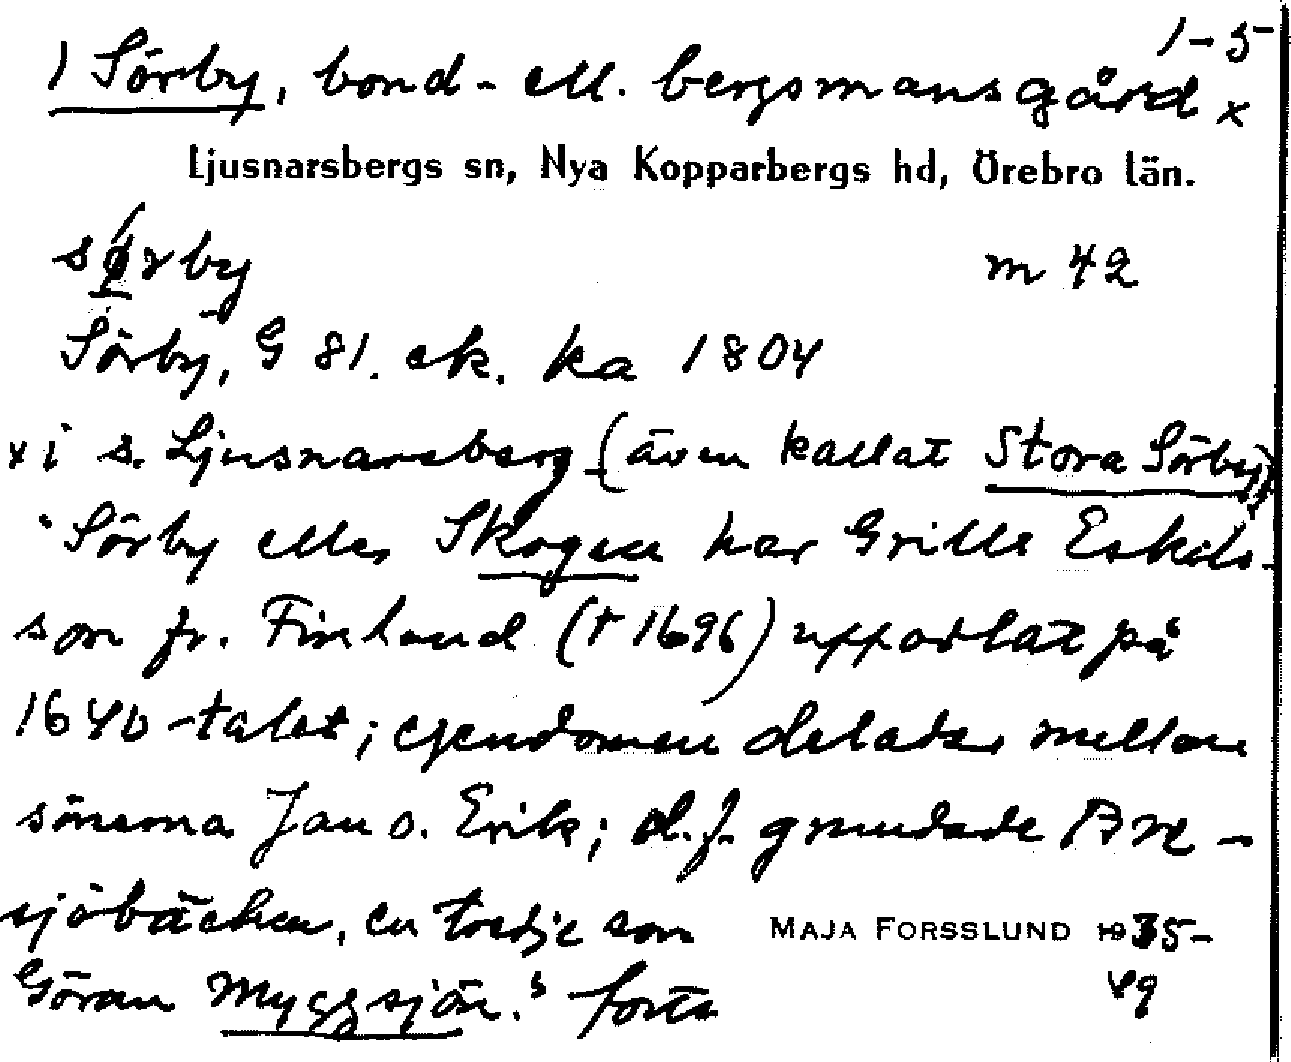 1-5
1 Sörby, bond- ell. bergsmansgård x
Ljusnarsbergs sn, Nya Kopparbergs hd, Örebro län.
sǿrby m 42
Sörby, G 81. ek. ka 1804
x i s. Ljusnarsberg (även kallat Stora Sörby)
"Sörby eller Skogen har Grills Eskils-
son fr. Finland († 1696) upparbetat på
1640-talet; egendomen delades mellan
sönerna Jan o. Erik; d.f. grundade Bre-
sjöbäcken, en tredje son
MAJA FORSSLUND 1935-
49
Göran Myggsjön." forts